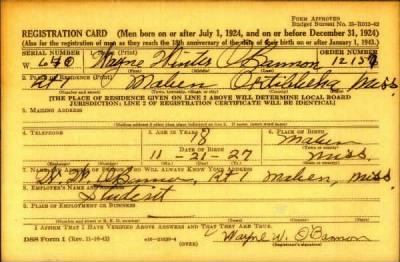 FORM APPROVED
Budget Bureau No. 33-R012-42
REGISTRATION CARD (Men born on or after July 1, 1924, and on or before December 31, 1924)
(Also for the registration of men as they reach the 18th anniversary of the date of their birth on or after January 1, 1943.)
SERIAL NUMBER 1. NAME (Print) ORDER NUMBER
W Wayne Winter O'Bannon 12157
(First) (Middle) (Last)
2. PLACE OF RESIDENCE (Print)
Rt 1 Maben Oktibbeha Miss.
(Number and street) (Town, township, village, or city) (County) (State)
[THE PLACE OF RESIDENCE GIVEN ON LINE 2 ABOVE WILL DETERMINE LOCAL BOARD
JURISDICTION; LINE 2 OF REGISTRATION CERTIFICATE WILL BE IDENTICAL]
3. MAILING ADDRESS
4. TELEPHONE 5. AGE IN YEARS 6. PLACE OF BIRTH
18 Maben
DATE OF BIRTH (Town or county)
11-21-27 Miss.
(Exchange) (Number) (Mo.) (Day) (Yr.) (State or country)
7. NAME AND ADDRESS OF PERSON WHO WILL ALWAYS KNOW YOUR ADDRESS
W. O'Bannon, Rt 1 Maben, Miss.
8. EMPLOYER'S NAME AND ADDRESS
Student
9. PLACE OF EMPLOYMENT OR BUSINESS
(Number and street or R. F. D. number) (Town) (County) (State)
I AFFIRM THAT I HAVE VERIFIED ABOVE ANSWERS AND THAT THEY ARE TRUE.
DSS Form 1 (Rev. 11-16-42) (OVER) Wayne W. O'Bannon
(Registrant's signature)